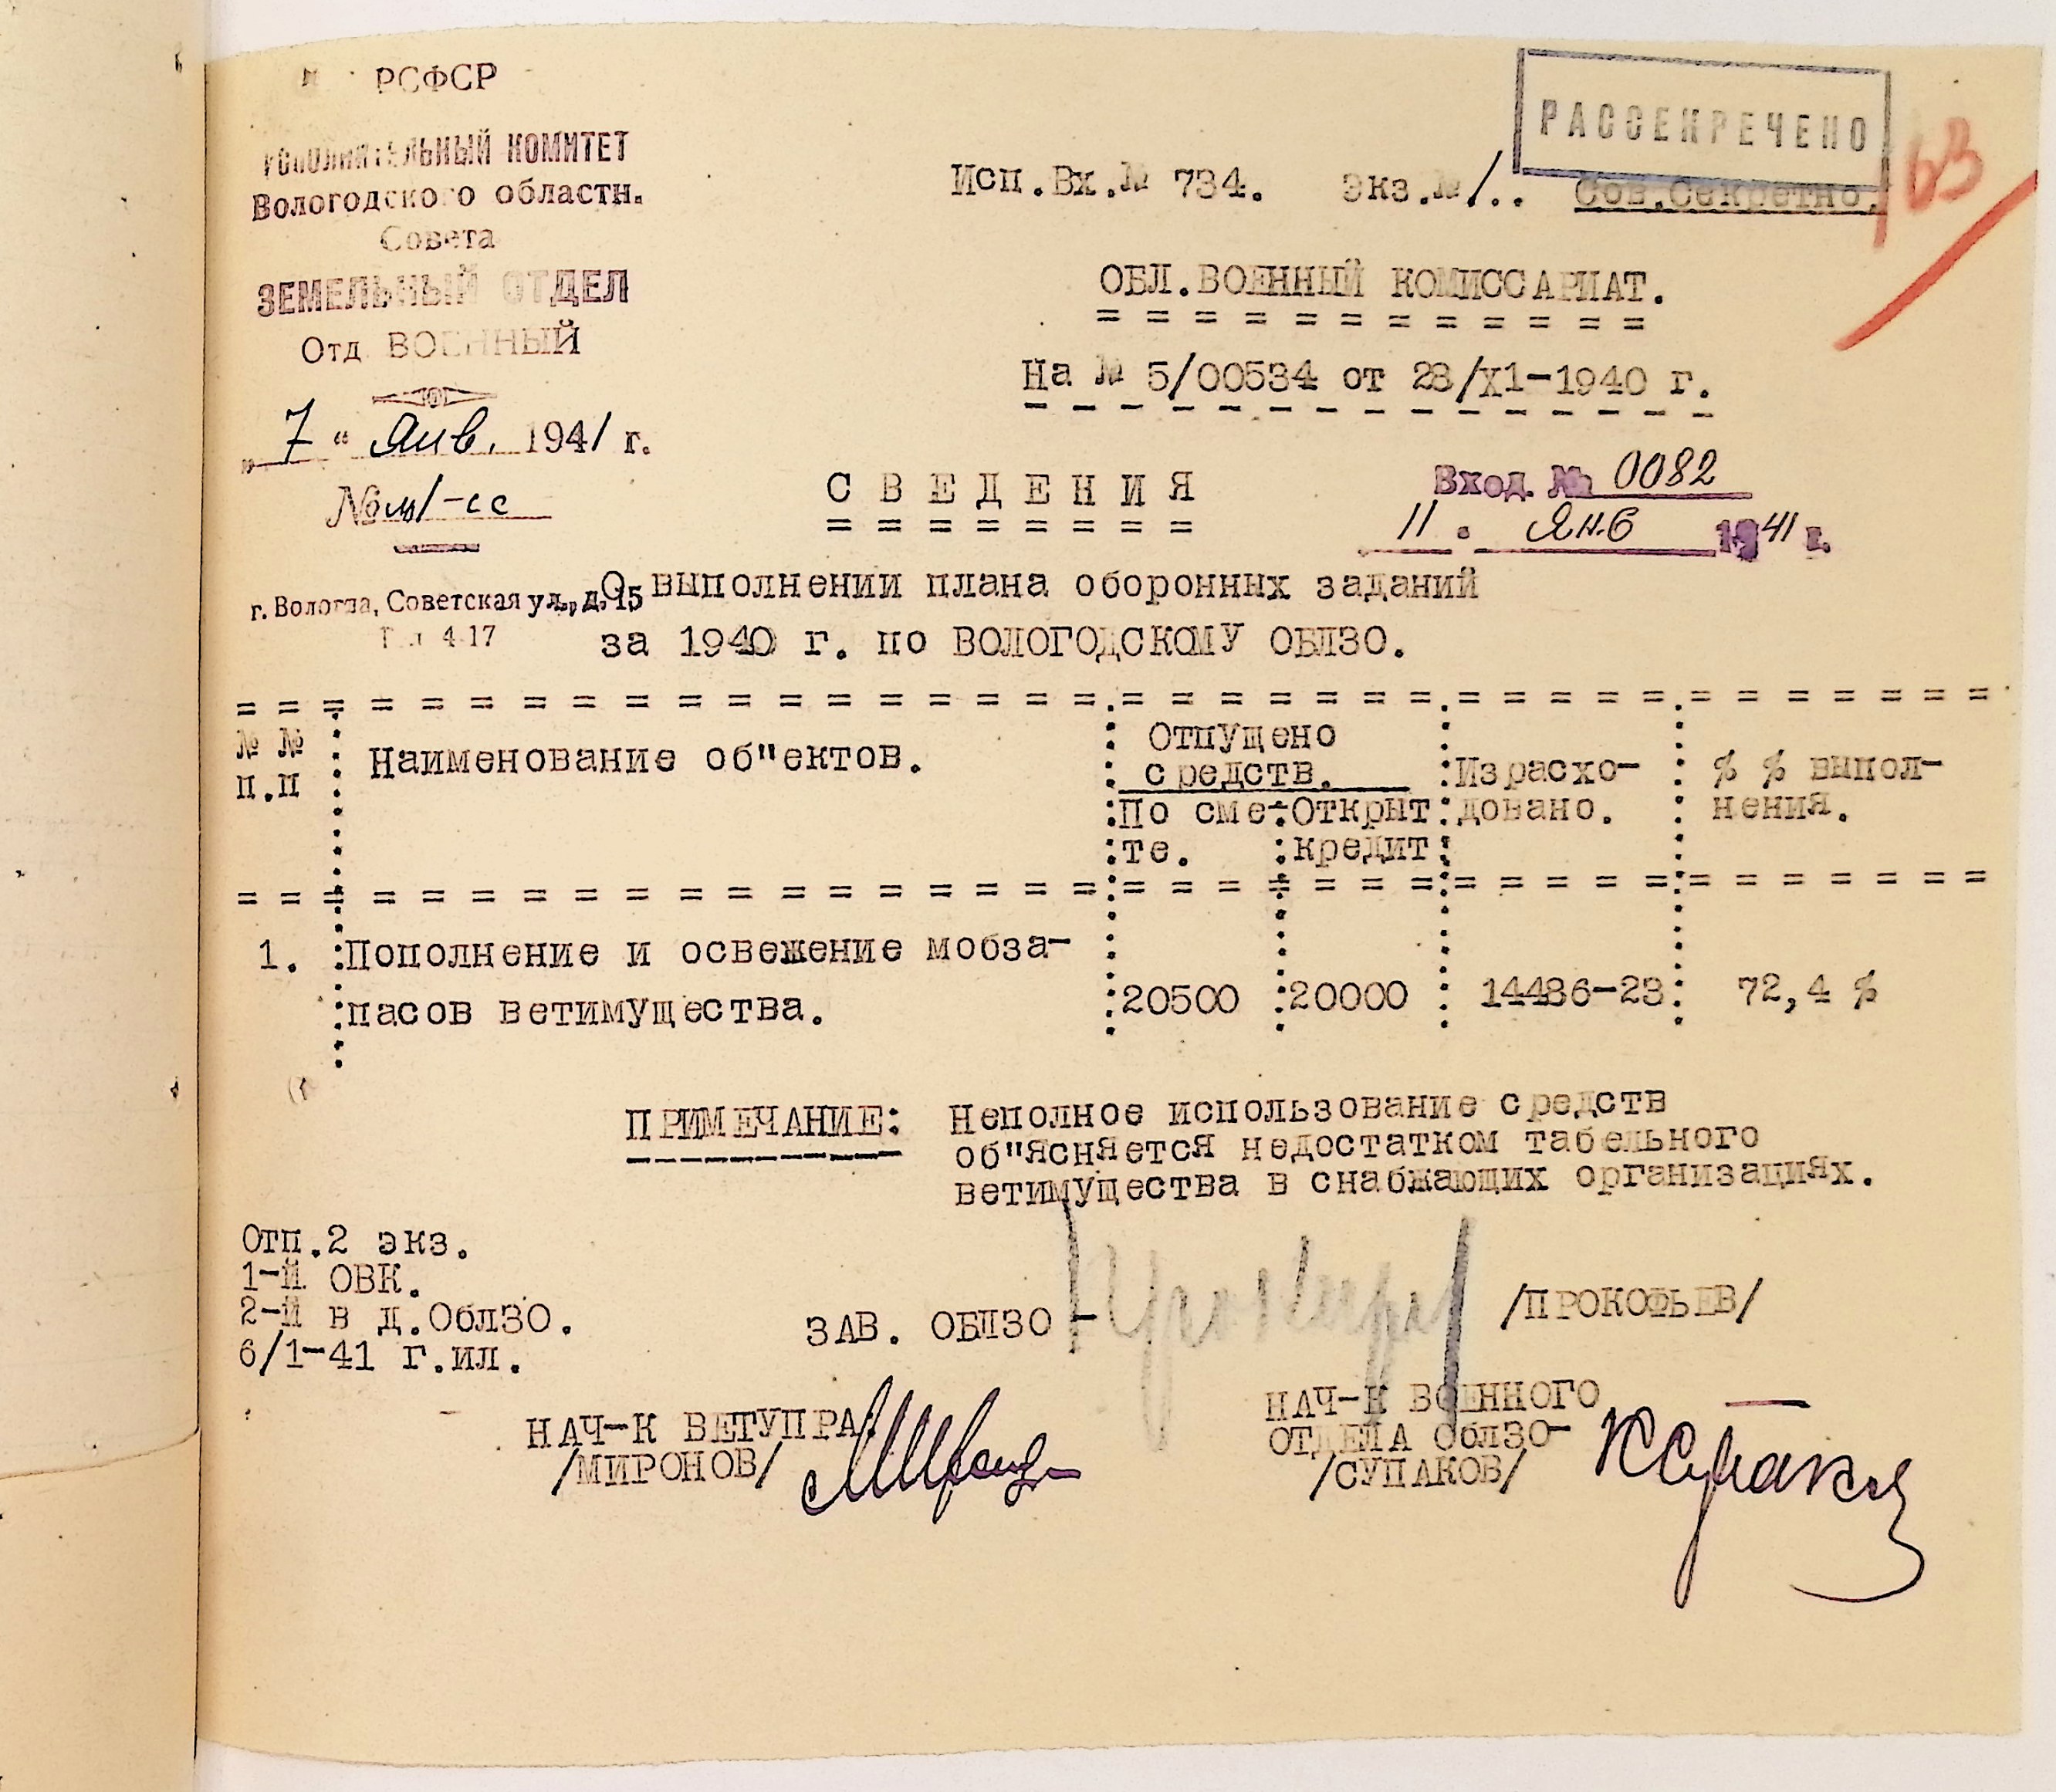 РСФСР
ИСПОЛНИТЕЛЬНЫЙ КОМИТЕТ
Вологодского областн.
Совета
ЗЕМЕЛЬНЫЙ ОТДЕЛ
Отд ВОЕННЫЙ
„7“ янв. 1941 г.
№ м/1-сс
г. Вологда, Советская ул., д. 15
Тел 4-17
РАССЕКРЕЧЕНО
63
Исп.Вх.№ 734. экз.№ 1.. Сов.Секретно.
ОБЛ.ВОЕННЫЙ КОМИССАРИАТ.
На № 5/00534 от 23/X1-1940 г.
Вход. № 0082
11 . Янв 1941 г.
СВЕДЕНИЯ
О выполнении плана оборонных заданий
за 1940 г. по ВОЛОГОДСКОМУ ОБЛЗО.
№ № п.п Наименование об"ектов. Отпущено средств. Израсхо- % % выпол-
По сме- Открыт довано. нения.
те. кредит
1. Пополнение и освежение мобза-
пасов ветимущества. 20500 20000 14486-23 72,4 %
ПРИМЕЧАНИЕ: Неполное использование средств
об"ясняется недостатком табельного
ветимущества в снабжающих организациях.
Отп.2 экз.
1-й ОВК.
2-й в д.ОблЗО.
6/1-41 г.ил.
ЗАВ. ОБЛЗО - /ПРОКОФЬЕВ/
НАЧ-К ВЕТУПРА.
/МИРОНОВ/
НАЧ-К ВОЕННОГО
ОТДЕЛА ОблЗО-
/СУПАКОВ/